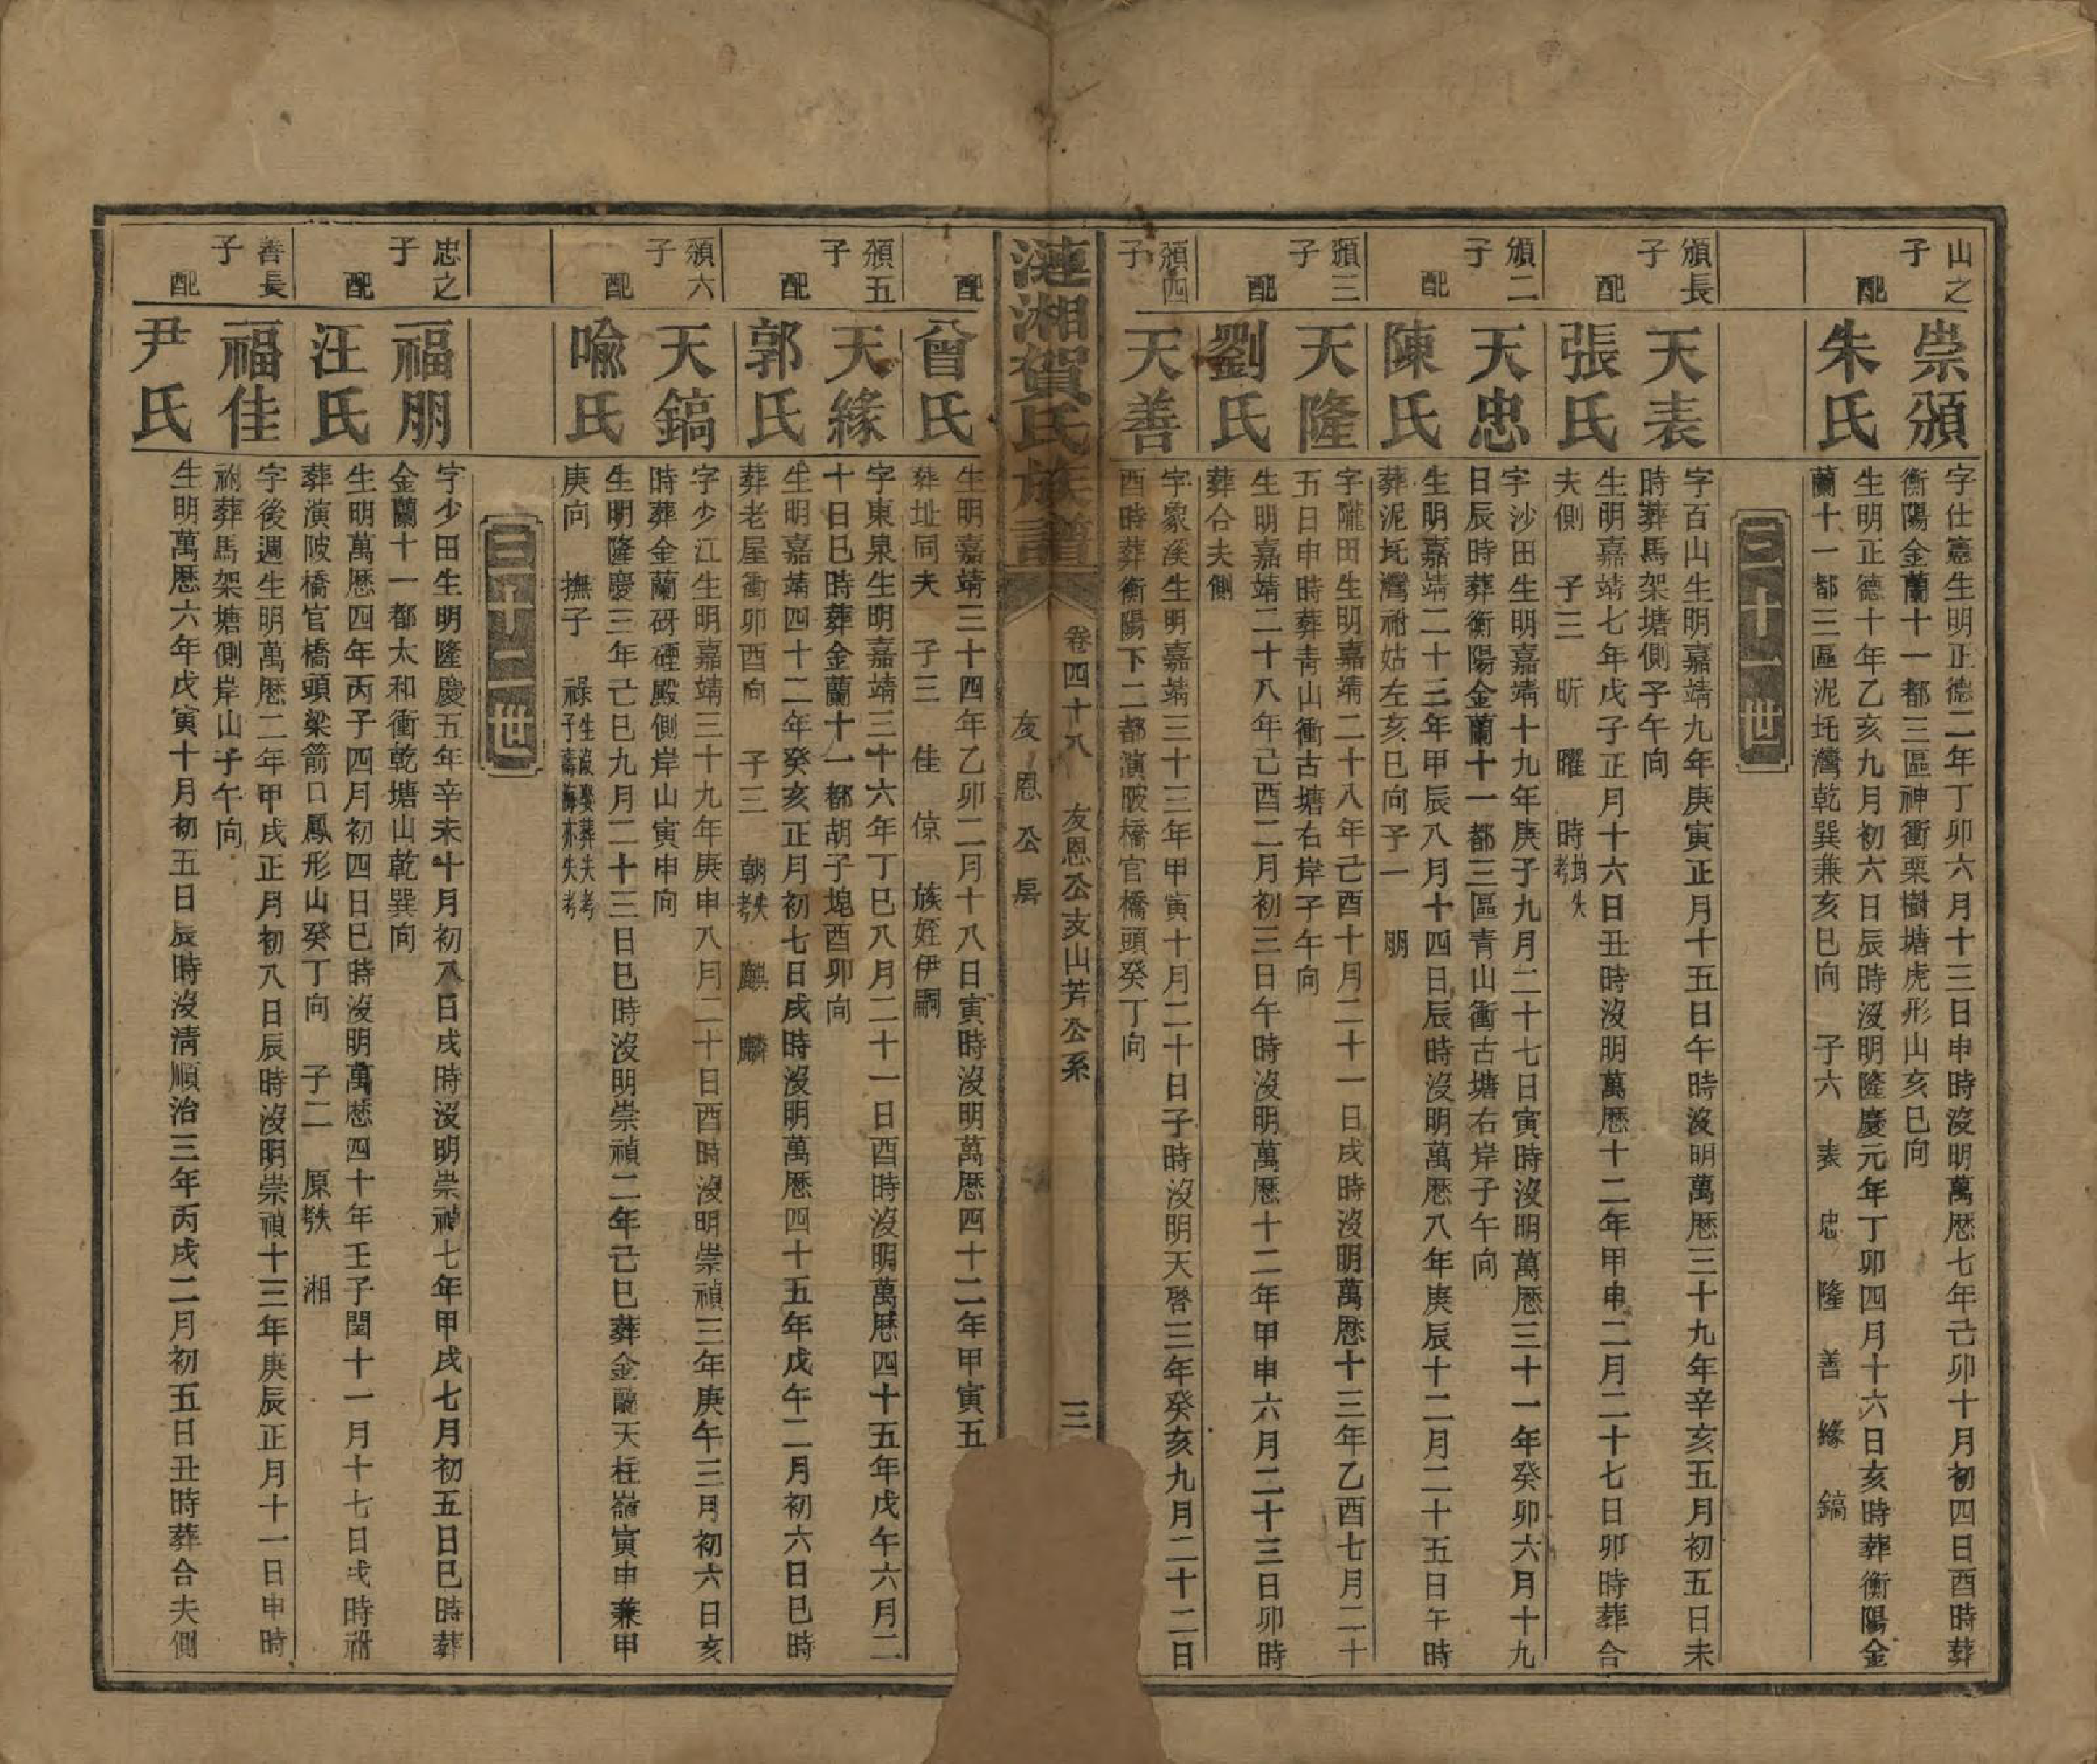 山之
子
崇頒
字仕憲生明正德二年丁卯六月十三日申時沒明萬歷七年己卯十月初四日酉時葬
衡陽金蘭十一都三區神衝栗樹塘虎形山亥巳向
配
朱氏
生明正德十年乙亥九月初六日辰時沒明隆慶元年丁卯四月十六日亥時葬衡陽金
蘭十一都三區泥圫灣乾巽兼亥巳向 子六 表 忠 隆 善 緣 鎬
三十一世
頒長
子
天表
字百山生明嘉靖九年庚寅正月十五日午時沒明萬歷三十九年辛亥五月初五日未
時葬馬架塘側子午向
配
張氏
生明嘉靖七年戊子正月十六日丑時沒明萬歷十二年甲申二月二十七日卯時葬合
夫側 子三 昕 曜 時均失考
頒二
子
天忠
字沙田生明嘉靖十九年庚子九月二十七日寅時沒明萬歷三十一年癸卯六月十九
日辰時葬衡陽金蘭十一都三區青山衝古塘右岸子午向
配
陳氏
生明嘉靖二十三年甲辰八月十四日辰時沒明萬歷八年庚辰十二月二十五日午時
葬泥圫灣祔姑左亥巳向子一 朋
頒三
子
天隆
字隴田生明嘉靖二十八年己酉十月二十一日戌時沒明萬歷十三年乙酉七月二十
五日申時葬青山衝古塘右岸子午向
配
劉氏
生明嘉靖二十八年己酉二月初三日午時沒明萬歷十二年甲申六月二十三日卯時
葬合夫側
頒四
子
天善
字象溪生明嘉靖三十三年甲寅十月二十日子時沒明天啓三年癸亥九月二十二日
酉時葬衡陽下二都演陂橋官橋頭癸丁向
漣湘賀氏族譜
卷四十八 友恩公支山芳公系 三
友恩公房
配
曾氏
生明嘉靖三十四年乙卯二月十八日寅時沒明萬歷四十二年甲寅五
葬址同夫 子三 佳 倞 族姪伊嗣
頒五
子
天緣
字東泉生明嘉靖三十六年丁巳八月二十一日酉時沒明萬歷四十五年戊午六月二
十日巳時葬金蘭十一都胡子塊酉卯向
配
郭氏
生明嘉靖四十二年癸亥正月初七日戌時沒明萬歷四十五年戊午二月初六日巳時
葬老屋衝卯酉向 子三 朝失考 麒 麟
頒六
子
天鎬
字少江生明嘉靖三十九年庚申八月二十日酉時沒明崇禎三年庚午三月初六日亥
時葬金蘭研硾殿側岸山寅申向
配
喩氏
生明隆慶三年己巳九月二十三日巳時沒明崇禎二年己巳葬金蘭天柱嶺寅申兼甲
庚向 撫子 祿生沒娶葬失考子壽海亦失考
三十二世
忠之
子
福朋
字少田生明隆慶五年辛未十月初八日戌時沒明崇禎七年甲戌七月初五日巳時葬
金蘭十一都太和衝乾塘山乾巽向
配
汪氏
生明萬歷四年丙子四月初四日巳時沒明萬歷四十年壬子閏十一月十七日戌時祔
葬演陂橋官橋頭梁箭口鳳形山癸丁向 子二 原失考 湘
善長
子
福佳
字後週生明萬歷二年甲戌正月初八日辰時沒明崇禎十三年庚辰正月十一日申時
祔葬馬架塘側岸山子午向
配
尹氏
生明萬歷六年戊寅十月初五日辰時沒清順治三年丙戌二月初五日丑時葬合夫側